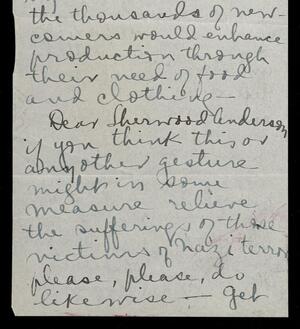 the thousands of new-
comers would enhance
production through
their need of food
and clothing—
Dear Sherwood Anderson
if you think this or
any other gesture
might in some
measure relieve
the sufferings of those
victims of nazi terror
please, please, do
likewise — get